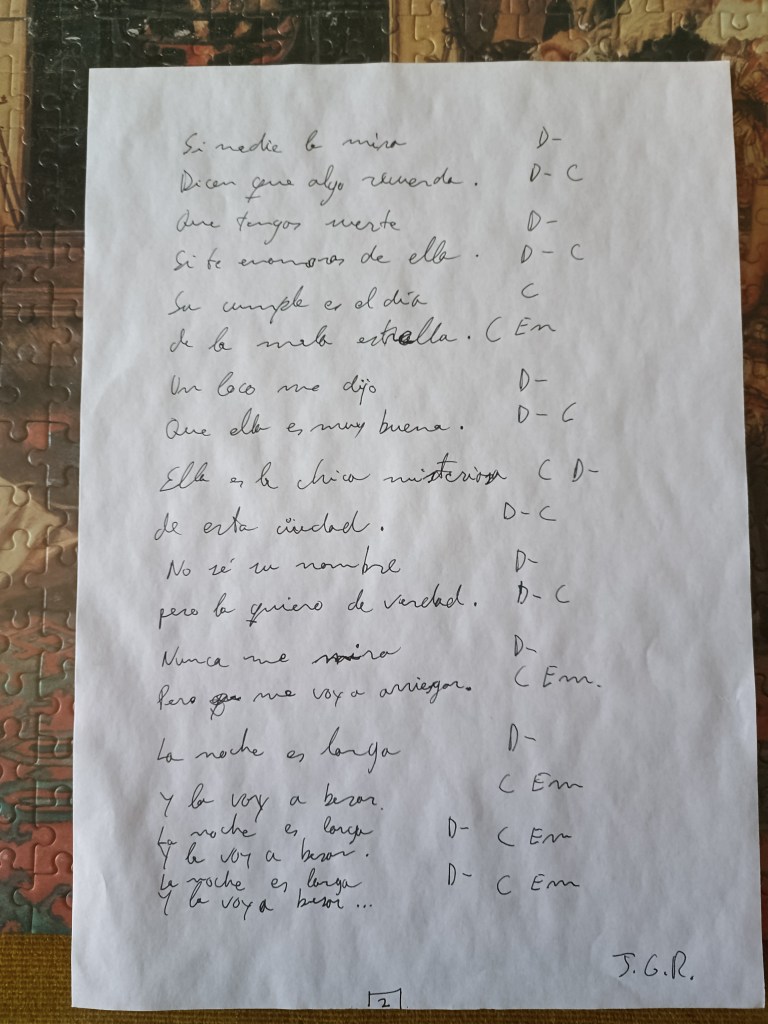 Si nadie la mira D-
Dicen que algo recuerda. D- C
Que tengas suerte D-
Si te enamoras de ella. D- C
Su cumple es el día C
de la mala estrella. C Em
Un loco me dijo D-
Que ella es muy buena. D- C
Ella es la chica misteriosa C D-
de esta ciudad. D- C
No sé su nombre D-
pero la quiero de verdad. D- C
Nunca me mira D-
Pero me voy a arriesgar. C Em.
La noche es larga D-
Y la voy a besar. C Em
La noche es larga D- C Em
Y la voy a besar.
La noche es larga D- C Em
Y la voy a besar...
J.G.R.
2